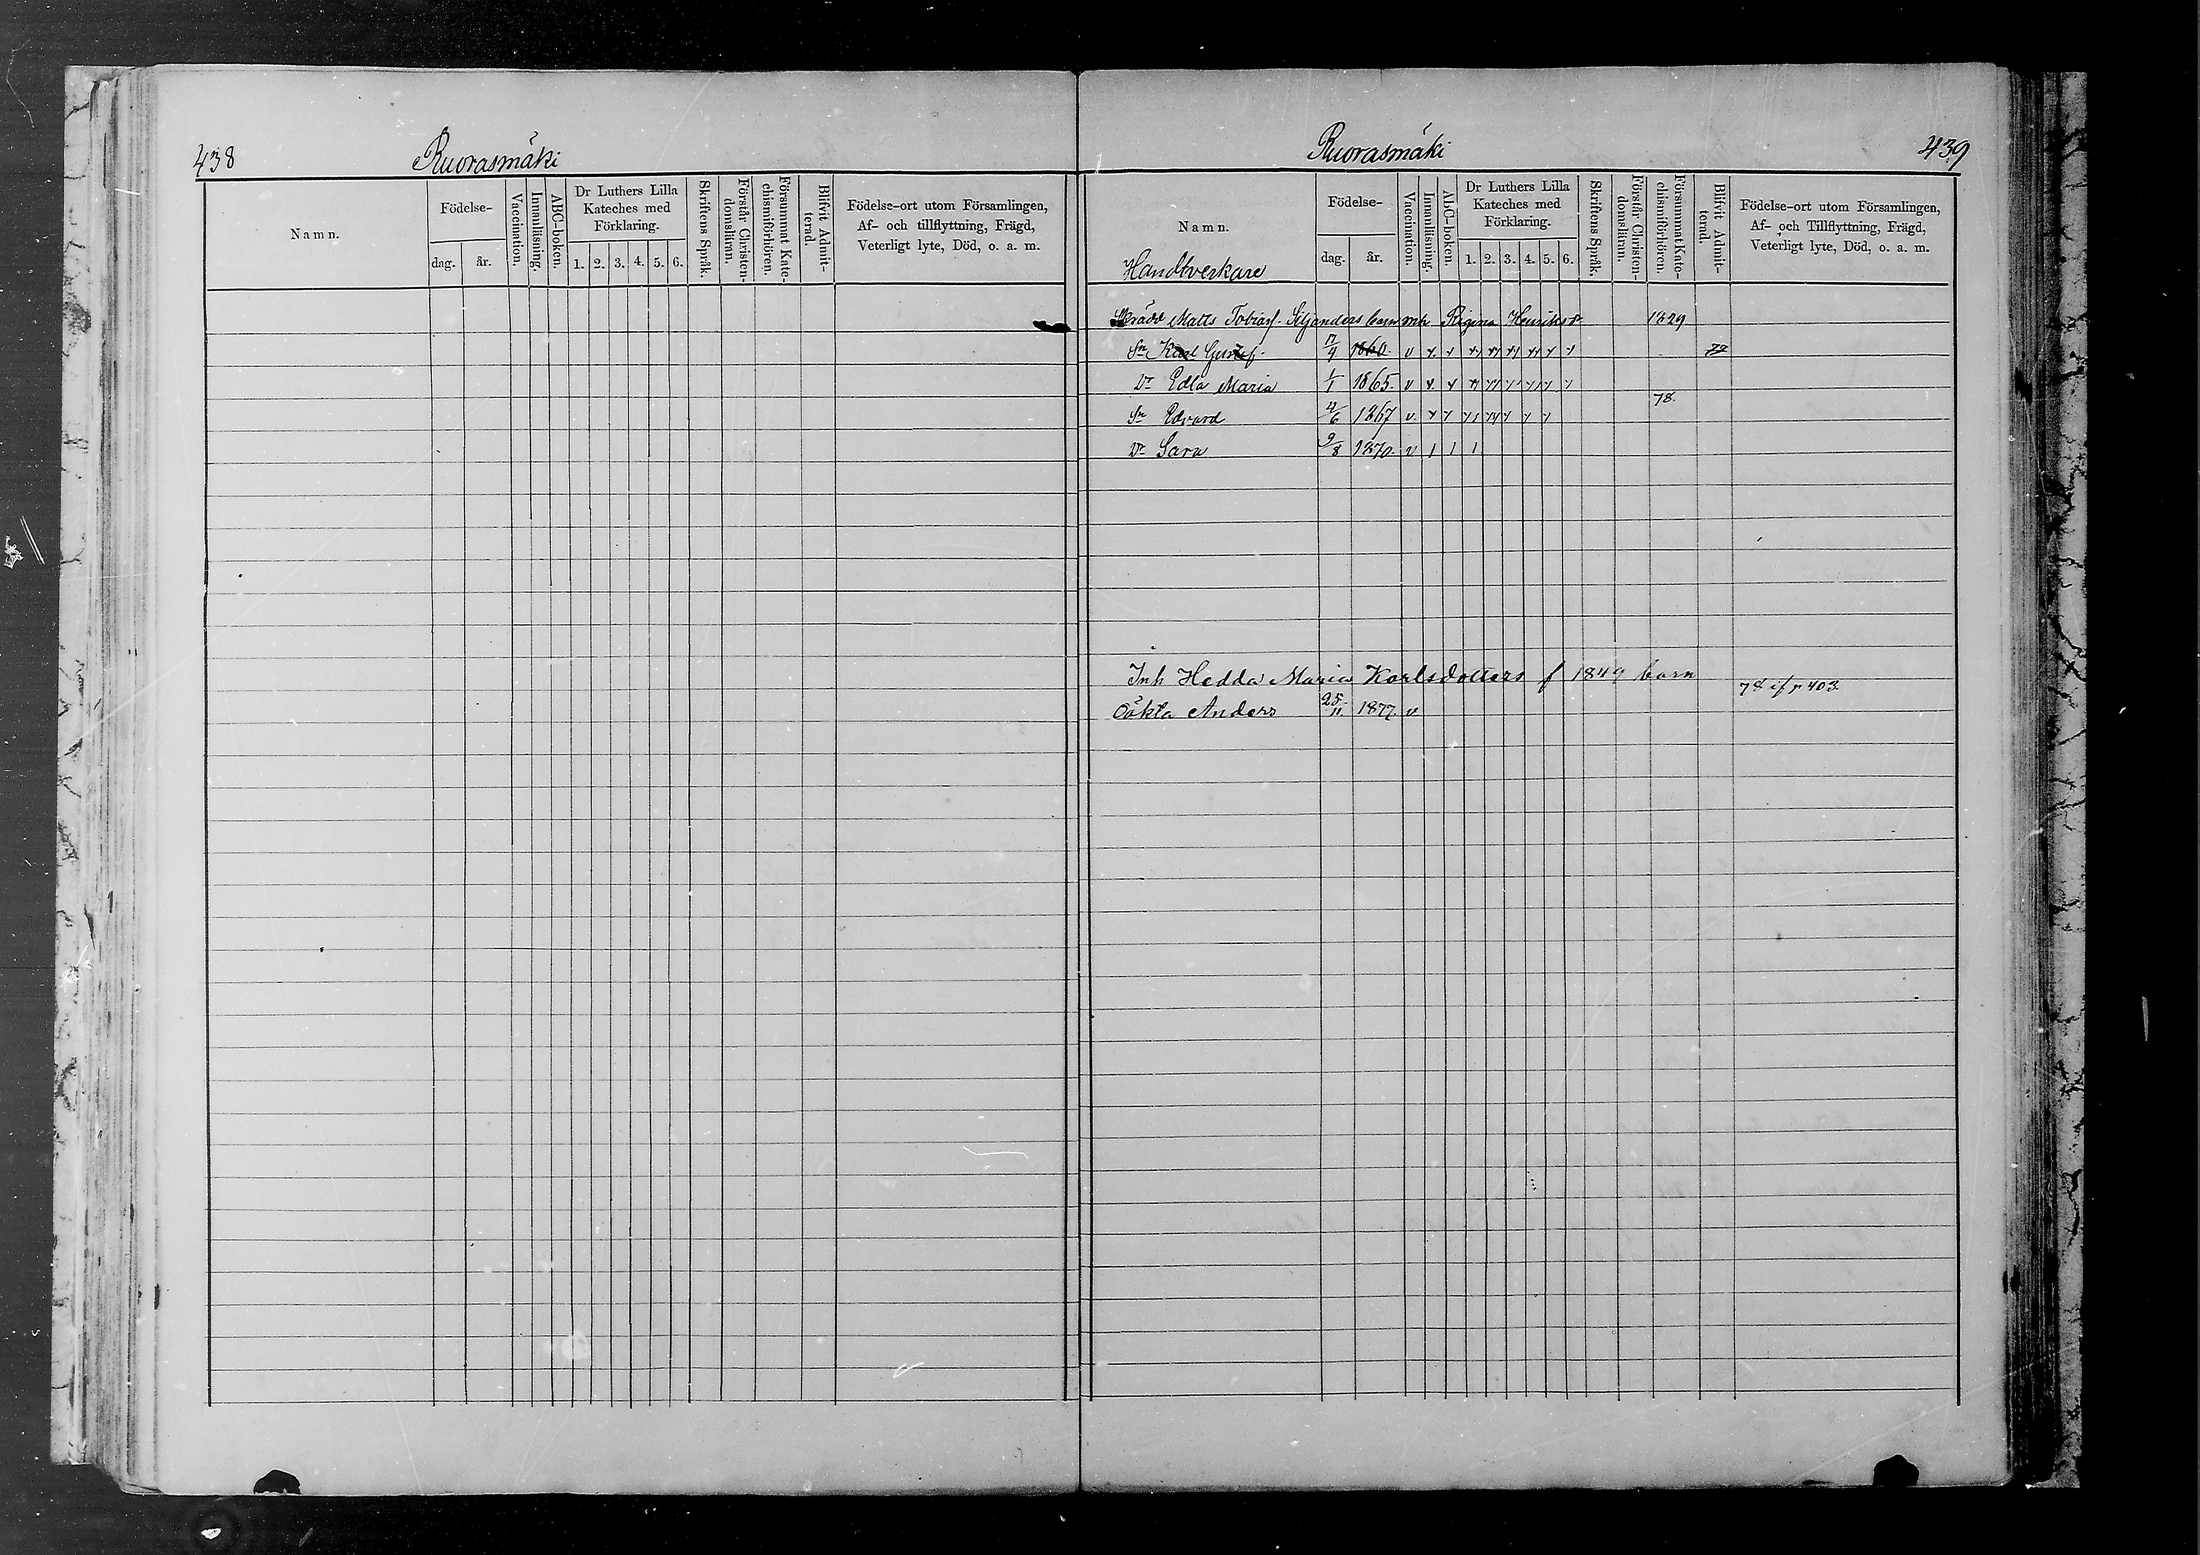 438 Ruorasmäki
Namn. Födelse- dag. år. Vaccination. Innanläsning. ABC-boken. Dr Luthers Lilla Kateches med Förklaring. 1. 2. 3. 4. 5. 6. Skriftens Språk. Förstår Christendomsläran. Försummat Katechismiförhören. Blifvit Admitterad. Födelse-ort utom Församlingen, Af- och tillflyttning, Frägd, Veterligt lyte, Död, o. a. m.
Ruorasmäki 439
Namn. Födelse- dag. år. Vaccination. Innanläsning. ABC-boken. Dr Luthers Lilla Kateches med Förklaring. 1. 2. 3. 4. 5. 6. Skriftens Språk. Förstår Christendomsläran. Försummat Katechismiförhören. Blifvit Admitterad. Födelse-ort utom Församlingen, Af- och Tillflyttning, Frägd, Veterligt lyte, Död, o. a. m.
Handtverkare
Skrädd Matts Tobiasf. Siljanders barn mh Regina Henriksd 1829
Sn Karl Gustaf 17/9 1860 v
Dr Edla Maria 1/1 1865 v
78
Sn Edvard 4/6 1867 v
Dr Sara 9/8 1870 v 1 1 1
Inh Hedda Maria Karlsdotters f 1849 barn
78 if p 403.
Oäkta Anders 25/11 1877 v